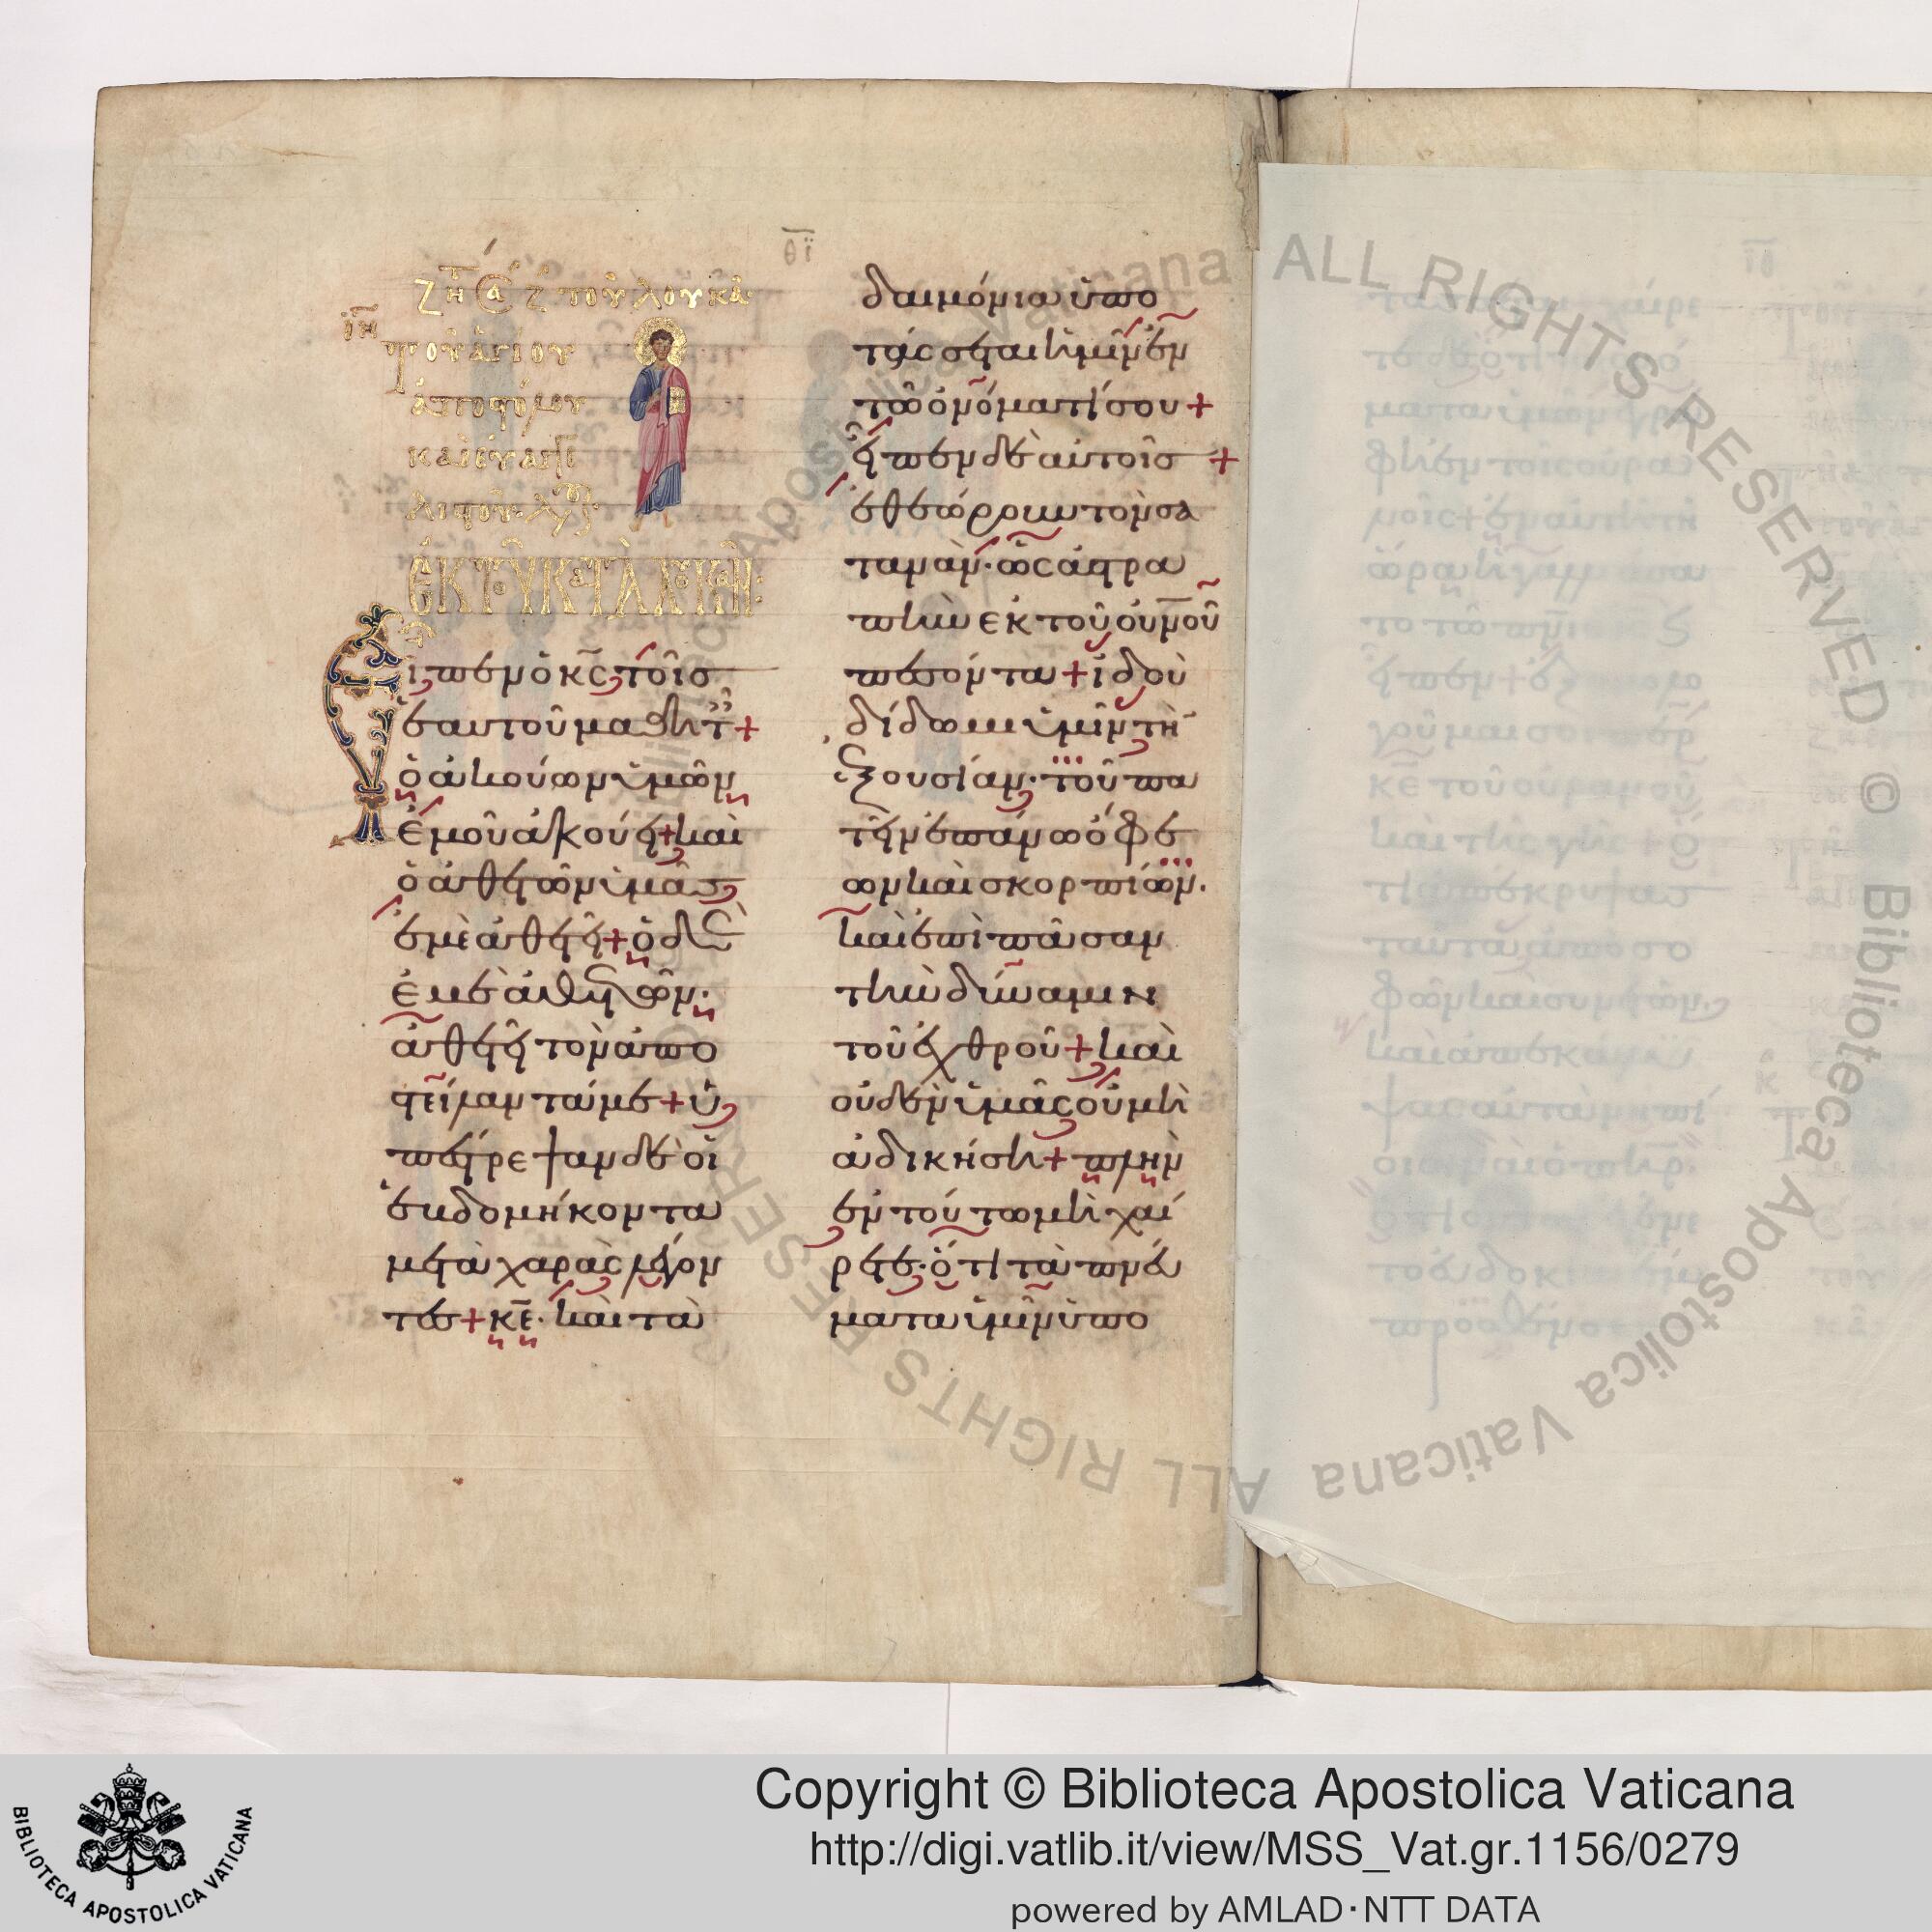 ζητ Σα ζ του λουκα
ιη του αγιου
αποστολου
και ευαγγε
λιστου λουκ
εκ του κατα λουκαν
Εἶπεν ὁ κς τοῖσ
ἑαυτοῦ μαθητ +
ὁ ἀκούων ὑμῶν
ἐμοῦ ἀκούει + καὶ
ὁ ἀθετῶν ὑμᾶσ
ἐμὲ ἀθετεῖ + ὁ δὲ
ἐμὲ ἀθετῶν·
ἀθετεῖ τὸν ἀπο
στείλαντά με + ὑ
πέστρεψαν δὲ οἱ
ἑβδομήκοντα
μετὰ χαρᾶς λέγον
τεσ + κε· καὶ τὰ
δαιμόνια ὑπο
τάσσεται ἡμῖν ἐν
τῶ ὀνόματί σου +
εἶπεν δὲ αὐτοῖσ +
ἐθεώρουν τὸν σα
τανὰν· ὡς ἀστρα
πὴν ἐκ τοῦ οὐνοῦ
πεσόντα + ἰδοὺ
δίδωμι ὑμῖν τὴ
ἐξουσίαν· τοῦ πα
τεῖν ἐπάνω ὄφε
ων καὶ σκορπίων·
καὶ ἐπὶ πᾶσαν
τὴν δύναμιν
τοῦ ἐχθροῦ + καὶ
οὐδὲν ὑμᾶς οὐ μὴ
ἀδικήση + πλὴν
ἐν τούτω μὴ χαί
ρετε· ὅτι τὰ πνεύ
ματα ὑμῖν ὑπο
ALL RIGHTS RESERVED © Biblioteca Apostolica Vaticana
Copyright © Biblioteca Apostolica Vaticana
http://digi.vatlib.it/view/MSS_Vat.gr.1156/0279
powered by AMLAD·NTT DATA
BIBLIOTECA APOSTOLICA VATICANA